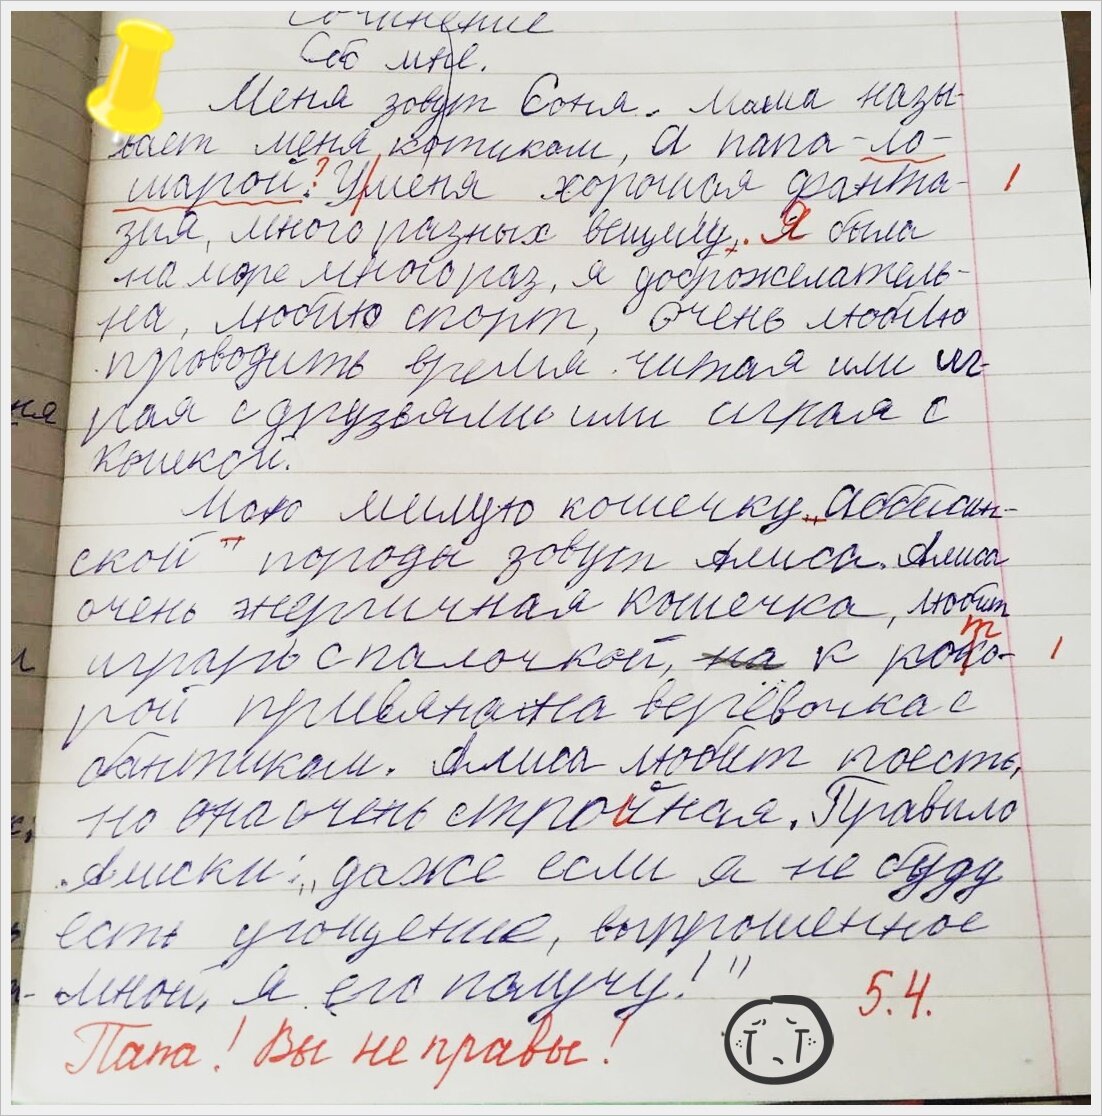 Сочинение
Обо мне.
Меня зовут Соня. Мама назы-
вает меня котиком, а папа - ло-
шарой? У меня хорошая фанта-
зия, много разных вещицу. Я была
на море много раз, я доброжелатель-
на, люблю спорт, очень люблю
проводить время читая или иг-
рая с друзьями или играя с
кошкой.
Мою милую кошечку „Аббисин-
ской" породы зовут Алиса. Алиса
очень энергичная кошечка, любит
играть с палочкой, на к кото-
рой привязана верёвочка с
бантиком. Алиса любит поесть,
но она очень стройная. Правило
Алиски: „даже если я не буду
есть угощение, выпрошенное
мной, я его получу!"
5.4.
Папа! Вы не правы!